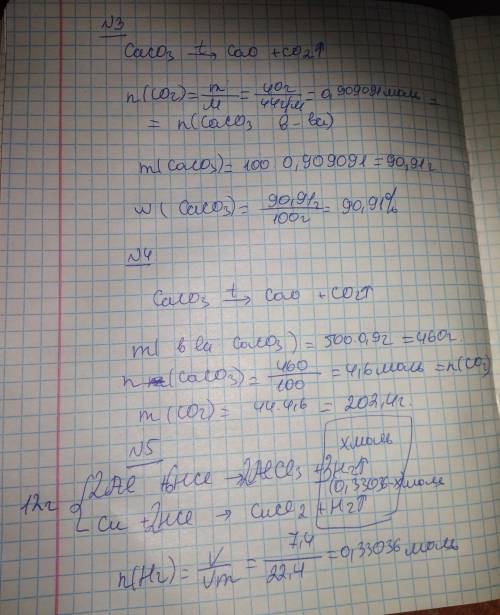 №3
CaCO3 t→ CaO + CO2↑
n(CO2) = m/M = 40г/44г/м = 0,909091 моль =
= n(CaCO3 в-ва)
m(CaCO3) = 100 0,909091 = 90,91г
w(CaCO3) = 90,91г/100г = 90,91%
№4
CaCO3 t→ CaO + CO2↑
m( в ва CaCO3) = 500.0,92 = 460г
n (CaCO3) = 460/100 = 4,6 моль = n(CO2)
m(CO2) = 44.4,6 = 202,4г.
№5
x моль
12г { 2Al + 6HCl → 2AlCl3 + 3H2↑
(0,33036-x) моль
Cu + 2HCl → CuCl2 + H2↑
n(H2) = V/Vm = 7,4/22,4 = 0,33036 моль